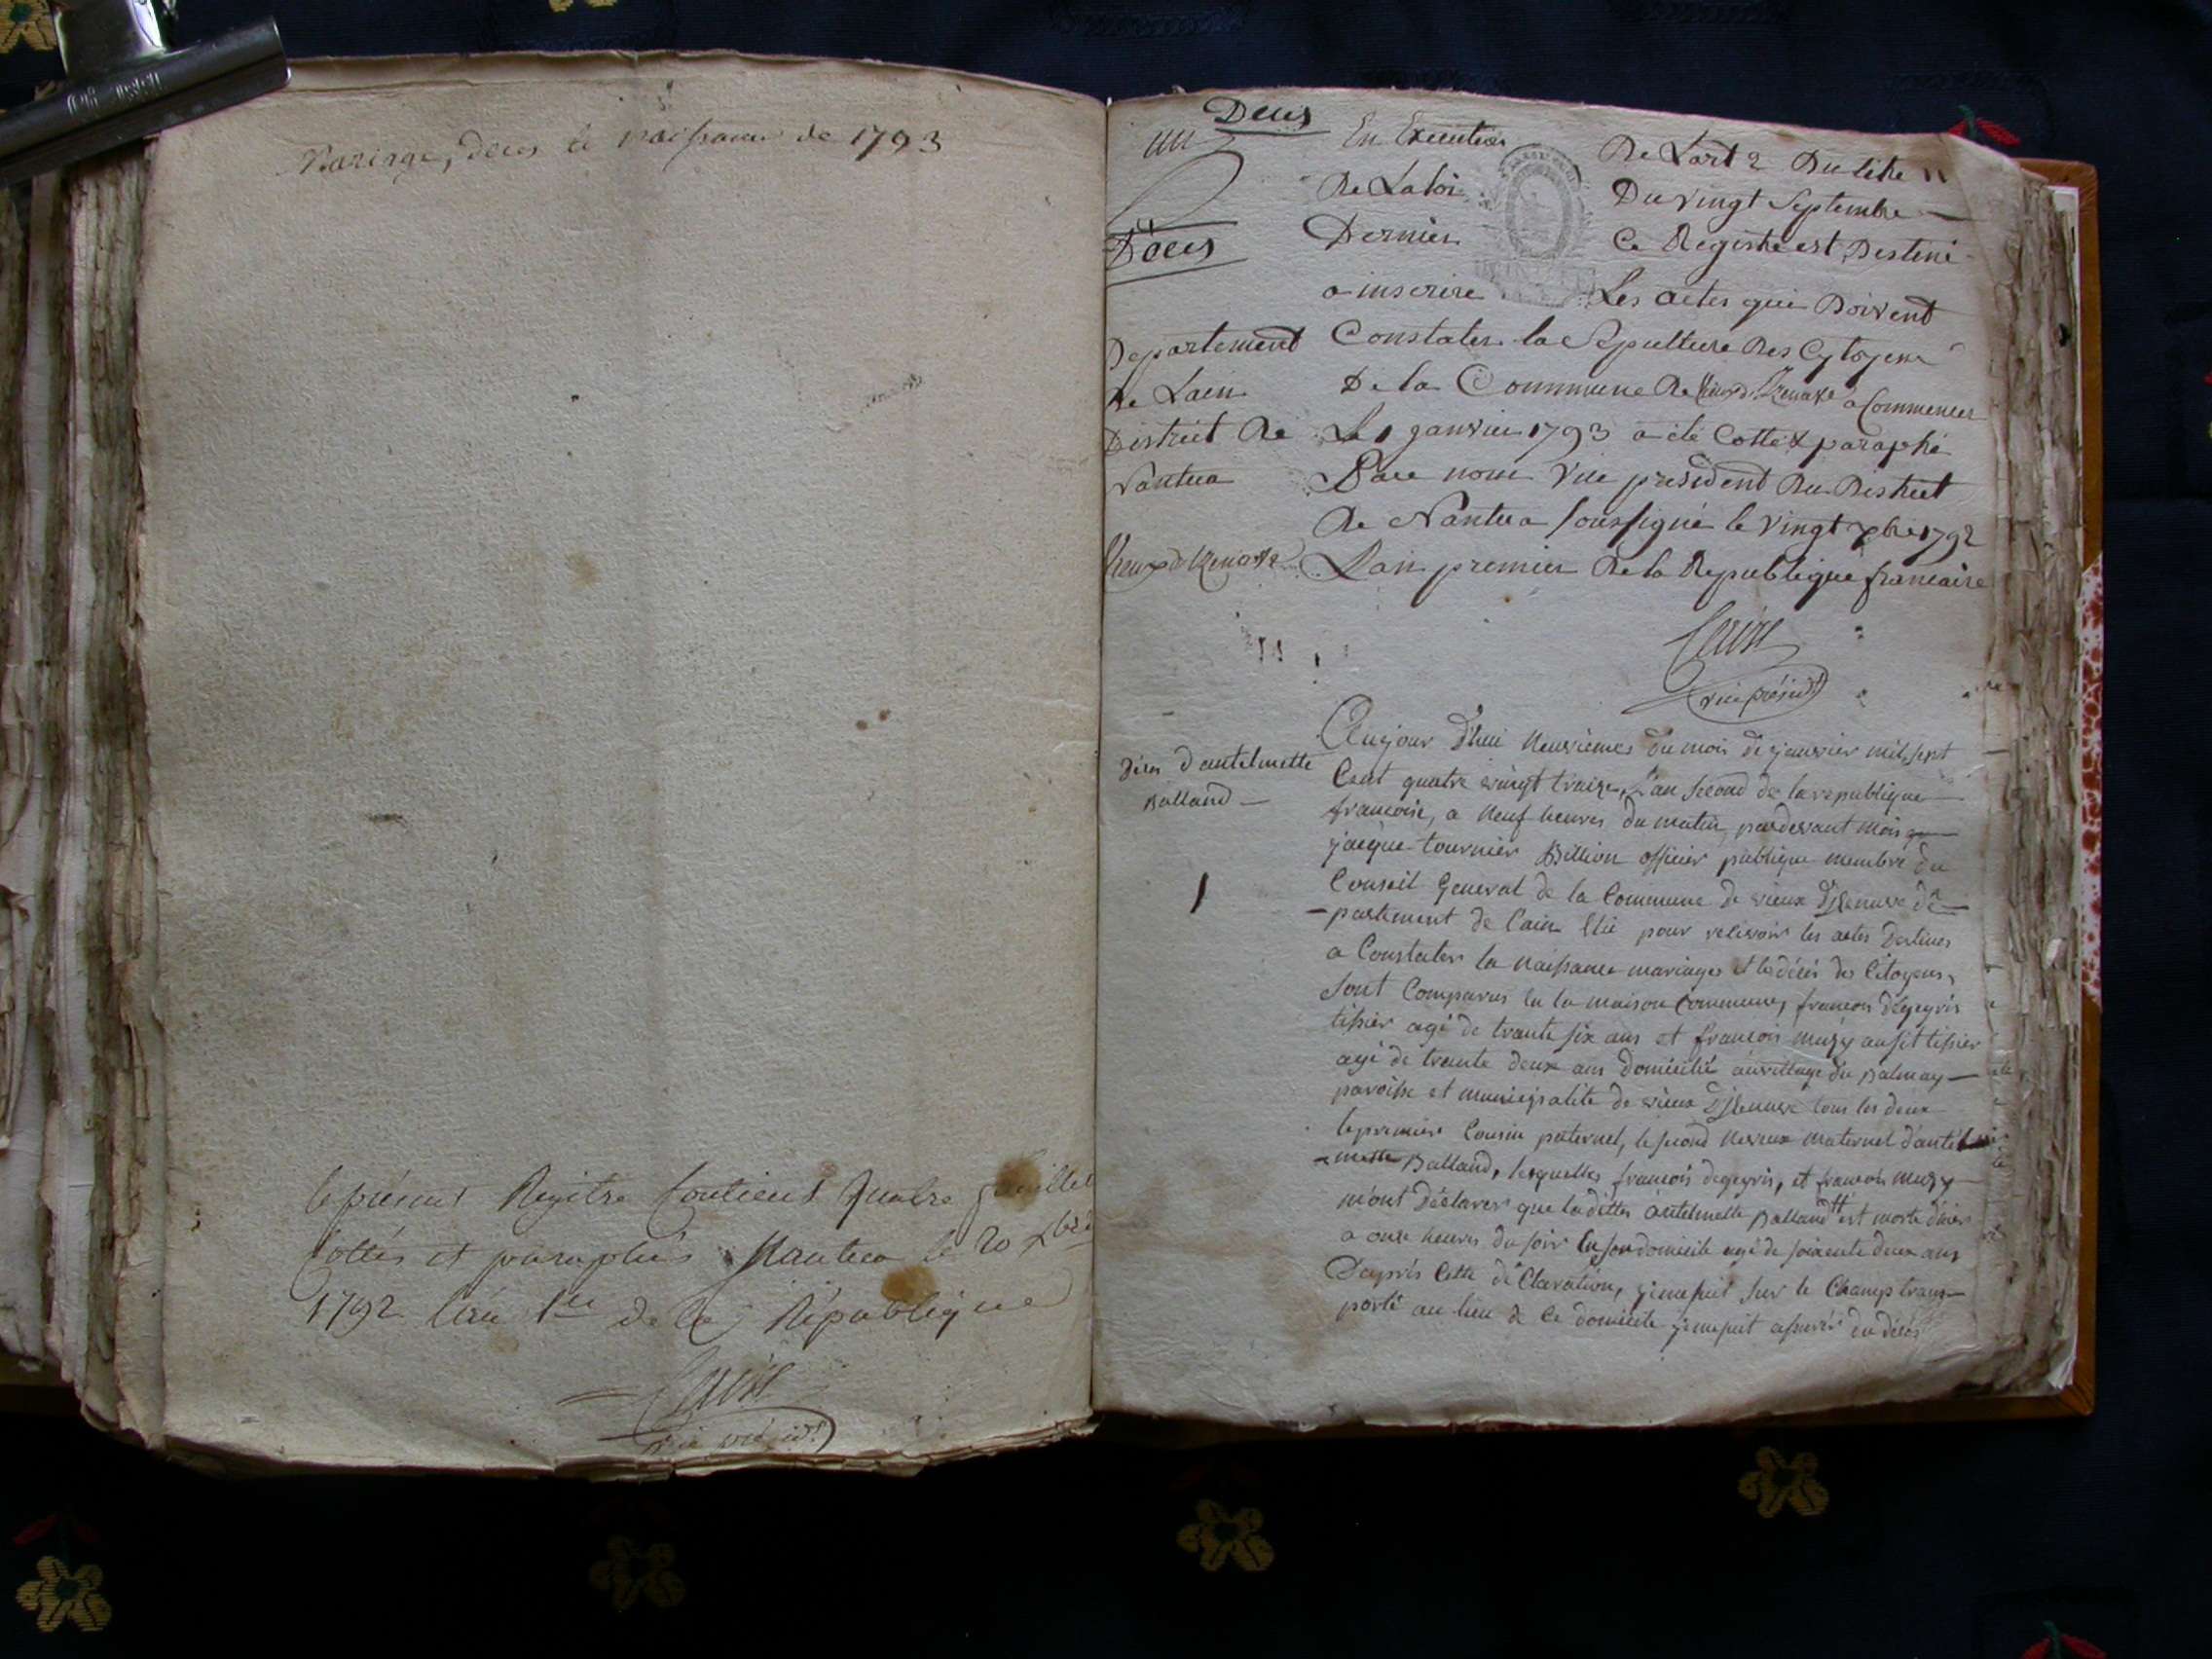 Mariage, deces et naissance de 1793
le présent Registre contient quatre feuillets
cottés et paraphés Nantua le 20 Xbre
1792 l'an 1er de la République
vice présidt
Deces
un
Décés
Departement
de Lain
District de
Nantua
Vieux d'Izenave
En Execution De Lart 2 Du titre II
De La Loi Du vingt Septembre
Dernier Ce Registre est Destiné
a inscrire Les actes qui Doivent
Constater la Sepulture Des Cytoyens
De la Commune De Vieux d'Izenave a Commencer
Le 1 Janvier 1793 a été Cotté & paraphé
Par nous Vice president Du District
De Nantua soussigné le vingt Xbre 1792
L'an premier De la Republique francaise
vice présidt
décès d'antelmette
Balland
1
Aujour d'hui neuvièmes du mois de janvier mil sept
Cent quatre vingt traize, l'an second de la republique
francoise, a neuf heures du matin, pardevant moi
jacque tournier Billion officier publique membre du
Conseil General de la Commune de vieux d'Izenave dé
partement de l'ain Elû pour relevoir les actes destines
a Constater la naissance mariages et les décés des Citoyens,
sont Comparus en la maison Commune, francois degeyris
tissier agé de trante six ans et francois muzy aussit tissier
agé de trante deux ans domicilié au village du Balmay
paroisse et municipalité de vieux d'Izenave tous les deux
le premier Cousin paternel, le second neveux maternel d'antel
mette Balland, lesquelles francois degeyris, et francois muzy
m'ont déclarer que ladittes antelmette Balland est morte d'hier
a onze heures du soir En son domicile agé de soixante deux ans
D'après Cette déClaration, je me suit sur le Champ trans
porté au lieu de ce domicile je me suit assurér du décés